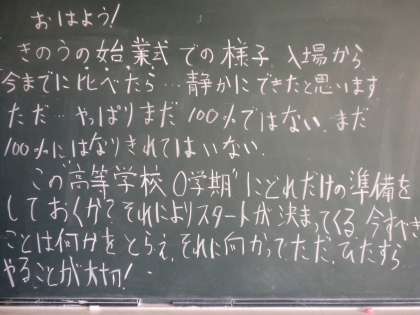 おはよう!
きのうの始業式での様子 入場から
今までに比べたら…静かにできたと思います
ただ…やっぱりまだ100%ではない.まだ
100%にはなりきれてはいない.
この"高等学校0学期"にどれだけの準備を
しておくかでそれによりスタートが決まってくる.今すべき
ことは何かをとらえ,それに向かってただ,ひたすら
やることが大切!